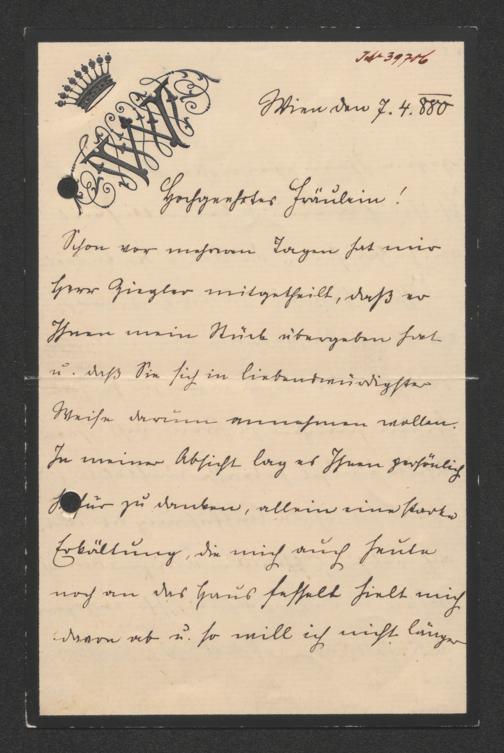 IN 39706
Wien den 7. 4. 880
Hochgeehrtes Fräulein!
Schon vor mehreren Tagen hat mir
Herr Ziegler mitgetheilt, daß er
Ihnen mein Stück übergeben hat
u. daß Sie sich in liebenswürdigster
Weise darum annehmen wollen.
In meiner Absicht lag es Ihnen persönlich
dafür zu danken, allein eine starke
Erkältung, die mich auch heute
noch an das Haus fesselt hielt mich
davon ab u. so will ich nicht länger